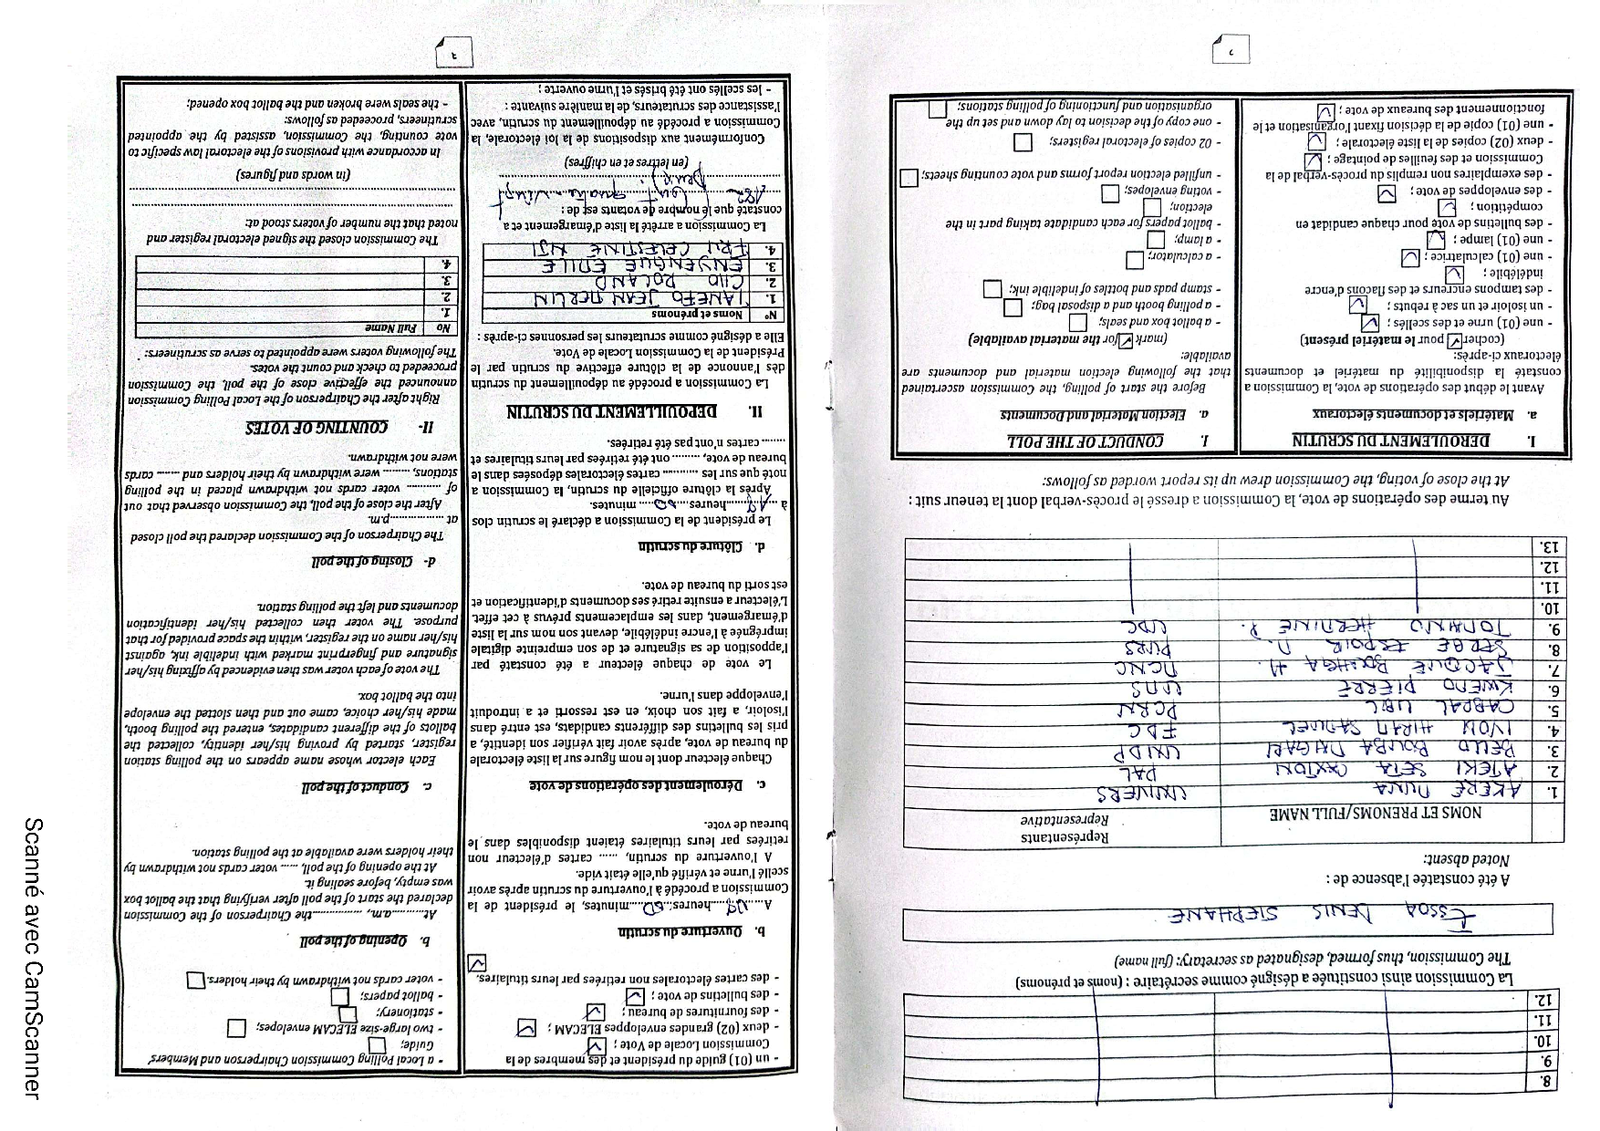 8.
9.
10.
11.
12.
La Commission ainsi constituée a désigné comme secrétaire : (noms et prénoms)
The Commission, thus formed, designated as secretary: (full name)
ESSOA DENIS STEPHANE
A été constatée l'absence de :
Noted absent:
NOMS ET PRENOMS/FULL NAME
Représentants
Representative
1. AKERE MUNA UNIVERS
2. ATEKI SETA CAXTON PAL
3. BELLO BOUBA MAIGARI UNDP
4. IYODI HIRAM SAMUEL FDC
5. CABRAL LIBII PCRN
6. KWEMO PIERRE UMS
7. JACQUES BOUGHA H. MCNC
8. SERGE ESPOIR M. PURS
9. TOMAINO HERMINE P. UDC
10.
11.
12.
13.
Au terme des opérations de vote, la Commission a dressé le procès-verbal dont la teneur suit :
At the close of voting, the Commission drew up its report worded as follows:
I. DEROULEMENT DU SCRUTIN
a. Matériels et documents électoraux
Avant le début des opérations de vote, la Commission a
constaté la disponibilité du matériel et documents
électoraux ci-après:
(cocher pour le matériel présent)
- une (01) urne et des scellés ;
- un isoloir et un sac à rebuts ;
- des tampons encreurs et des flacons d'encre
indélébile ;
- une (01) calculatrice ;
- une (01) lampe ;
- des bulletins de vote pour chaque candidat en
compétition ;
- des enveloppes de vote ;
- des exemplaires non remplis du procès-verbal de la
Commission et des feuilles de pointage ;
- deux (02) copies de la liste électorale ;
- une (01) copie de la décision fixant l'organisation et le
fonctionnement des bureaux de vote ;
I. CONDUCT OF THE POLL
a. Election Material and Documents
Before the start of polling, the Commission ascertained
that the following election material and documents are
available:
(mark for the material available)
- a ballot box and seals;
- a polling booth and a disposal bag;
- stamp pads and bottles of indelible ink;
- a calculator;
- a lamp;
- ballot papers for each candidate taking part in the
election;
- voting envelopes;
- unfilled election report forms and vote counting sheets;
- 02 copies of electoral registers;
- one copy of the decision to lay down and set up the
organisation and functioning of polling stations;
2
- un (01) guide du président et des membres de la
Commission Locale de Vote ;
- deux (02) grandes enveloppes ELECAM ;
- des fournitures de bureau ;
- des bulletins de vote ;
- des cartes électorales non retirées par leurs titulaires.
b. Ouverture du scrutin
A......heures...00...minutes, le président de la
Commission a procédé à l'ouverture du scrutin après avoir
scellé l'urne et vérifié qu'elle était vide.
A l'ouverture du scrutin, ...... cartes d'électeur non
retirées par leurs titulaires étaient disponibles dans le
bureau de vote.
c. Déroulement des opérations de vote
Chaque électeur dont le nom figure sur la liste électorale
du bureau de vote, après avoir fait vérifier son identité, a
pris les bulletins des différents candidats, est entré dans
l'isoloir, a fait son choix, en est ressorti et a introduit
l'enveloppe dans l'urne.
Le vote de chaque électeur a été constaté par
l'apposition de sa signature et de son empreinte digitale
imprégnée à l'encre indélébile, devant son nom sur la liste
d'émargement, dans les emplacements prévus à cet effet.
L'électeur a ensuite retiré ses documents d'identification et
est sorti du bureau de vote.
d. Clôture du scrutin
Le président de la Commission a déclaré le scrutin clos
à ...18...heures...00... minutes.
Après la clôture officielle du scrutin, la Commission a
noté que sur les .......... cartes électorales déposées dans le
bureau de vote, ........ ont été retirées par leurs titulaires et
....... cartes n'ont pas été retirées.
II. DEPOUILLEMENT DU SCRUTIN
La Commission a procédé au dépouillement du scrutin
dès l'annonce de la clôture effective du scrutin par le
Président de la Commission Locale de Vote.
Elle a désigné comme scrutateurs les personnes ci-après :
N° Noms et prénoms
1. TANEFO JEAN MERLIN
2. CHO ROLAND
3. ENYENGUE EDILE
4. FRU CELESTINE NJI
La Commission a arrêté la liste d'émargement et a
constaté que le nombre de votants est de :
182 (cent quatre-vingt
Deux)
(en lettres et en chiffres)
Conformément aux dispositions de la loi électorale, la
Commission a procédé au dépouillement du scrutin, avec
l'assistance des scrutateurs, de la manière suivante :
- les scellés ont été brisés et l'urne ouverte ;
- a Local Polling Commission Chairperson and Members'
Guide;
- two large-size ELECAM envelopes;
- stationery;
- ballot papers;
- voter cards not withdrawn by their holders.
b. Opening of the poll
At..........am, ..............the Chairperson of the Commission
declared the start of the poll after verifying that the ballot box
was empty, before sealing it.
At the opening of the poll, ..... voter cards not withdrawn by
their holders were available at the polling station.
c. Conduct of the poll
Each elector whose name appears on the polling station
register, started by proving his/her identity, collected the
ballots of the different candidates, entered the polling booth,
made his/her choice, came out and then slotted the envelope
into the ballot box.
The vote of each voter was then evidenced by affixing his/her
signature and fingerprint marked with indelible ink, against
his/her name on the register, within the space provided for that
purpose. The voter then collected his/her identification
documents and left the polling station.
d- Closing of the poll
The Chairperson of the Commission declared the poll closed
at ..................p.m.
After the close of the poll, the Commission observed that out
of .......... voter cards not withdrawn placed in the polling
stations, ........ were withdrawn by their holders and ....... cards
were not withdrawn.
II- COUNTING OF VOTES
Right after the Chairperson of the Local Polling Commission
announced the effective close of the poll, the Commission
proceeded to check and count the votes.
The following voters were appointed to serve as scrutineers:
No Full Name
1.
2.
3.
4.
The Commission closed the signed electoral register and
noted that the number of voters stood at:
(in words and figures)
In accordance with provisions of the electoral law specific to
vote counting, the Commission, assisted by the appointed
scrutineers, proceeded as follows:
- the seals were broken and the ballot box opened;
3
Scanné avec CamScanner